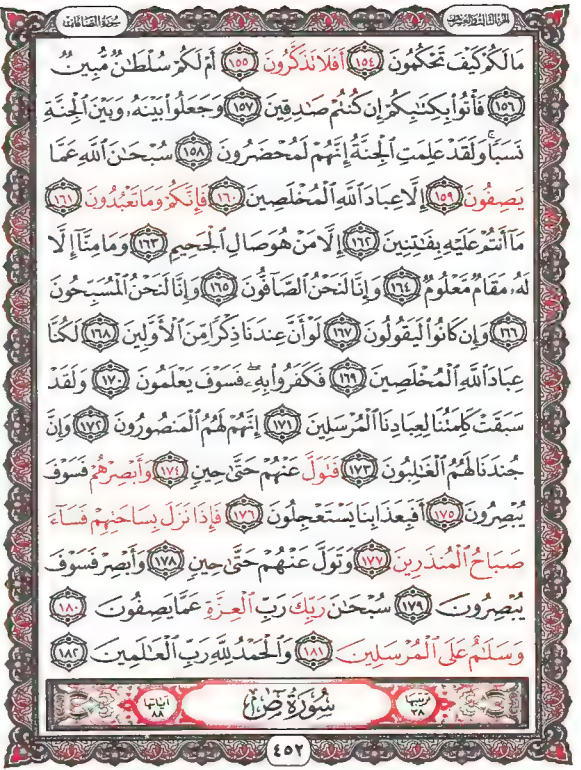 سُورَةُ الصَّافَّاتِ الجُزْءُ الثَّالِثُ وَالعِشْرُونَ
مَا لَكُمْ كَيْفَ تَحْكُمُونَ ﴿١٥٤﴾ أَفَلَا تَذَكَّرُونَ ﴿١٥٥﴾ أَمْ لَكُمْ سُلْطَٰنٌ مُّبِينٌ
﴿١٥٦﴾ فَأْتُوا۟ بِكِتَٰبِكُمْ إِن كُنتُمْ صَٰدِقِينَ ﴿١٥٧﴾ وَجَعَلُوا۟ بَيْنَهُۥ وَبَيْنَ ٱلْجِنَّةِ
نَسَبًا ۚ وَلَقَدْ عَلِمَتِ ٱلْجِنَّةُ إِنَّهُمْ لَمُحْضَرُونَ ﴿١٥٨﴾ سُبْحَٰنَ ٱللَّهِ عَمَّا
يَصِفُونَ ﴿١٥٩﴾ إِلَّا عِبَادَ ٱللَّهِ ٱلْمُخْلَصِينَ ﴿١٦٠﴾ فَإِنَّكُمْ وَمَا تَعْبُدُونَ ﴿١٦١﴾
مَآ أَنتُمْ عَلَيْهِ بِفَٰتِنِينَ ﴿١٦٢﴾ إِلَّا مَنْ هُوَ صَالِ ٱلْجَحِيمِ ﴿١٦٣﴾ وَمَا مِنَّآ إِلَّا
لَهُۥ مَقَامٌ مَّعْلُومٌ ﴿١٦٤﴾ وَإِنَّا لَنَحْنُ ٱلصَّآفُّونَ ﴿١٦٥﴾ وَإِنَّا لَنَحْنُ ٱلْمُسَبِّحُونَ
﴿١٦٦﴾ وَإِن كَانُوا۟ لَيَقُولُونَ ﴿١٦٧﴾ لَوْ أَنَّ عِندَنَا ذِكْرًا مِّنَ ٱلْأَوَّلِينَ ﴿١٦٨﴾ لَكُنَّا
عِبَادَ ٱللَّهِ ٱلْمُخْلَصِينَ ﴿١٦٩﴾ فَكَفَرُوا۟ بِهِۦ ۖ فَسَوْفَ يَعْلَمُونَ ﴿١٧٠﴾ وَلَقَدْ
سَبَقَتْ كَلِمَتُنَا لِعِبَادِنَا ٱلْمُرْسَلِينَ ﴿١٧١﴾ إِنَّهُمْ لَهُمُ ٱلْمَنصُورُونَ ﴿١٧٢﴾ وَإِنَّ
جُندَنَا لَهُمُ ٱلْغَٰلِبُونَ ﴿١٧٣﴾ فَتَوَلَّ عَنْهُمْ حَتَّىٰ حِينٍ ﴿١٧٤﴾ وَأَبْصِرْهُمْ فَسَوْفَ
يُبْصِرُونَ ﴿١٧٥﴾ أَفَبِعَذَابِنَا يَسْتَعْجِلُونَ ﴿١٧٦﴾ فَإِذَا نَزَلَ بِسَاحَتِهِمْ فَسَآءَ
صَبَاحُ ٱلْمُنذَرِينَ ﴿١٧٧﴾ وَتَوَلَّ عَنْهُمْ حَتَّىٰ حِينٍ ﴿١٧٨﴾ وَأَبْصِرْ فَسَوْفَ
يُبْصِرُونَ ﴿١٧٩﴾ سُبْحَٰنَ رَبِّكَ رَبِّ ٱلْعِزَّةِ عَمَّا يَصِفُونَ ﴿١٨٠﴾
وَسَلَٰمٌ عَلَى ٱلْمُرْسَلِينَ ﴿١٨١﴾ وَٱلْحَمْدُ لِلَّهِ رَبِّ ٱلْعَٰلَمِينَ ﴿١٨٢﴾
ترتيبها ٣٨ سُورَةُ صٓ آياتها ٨٨
٤٥٢